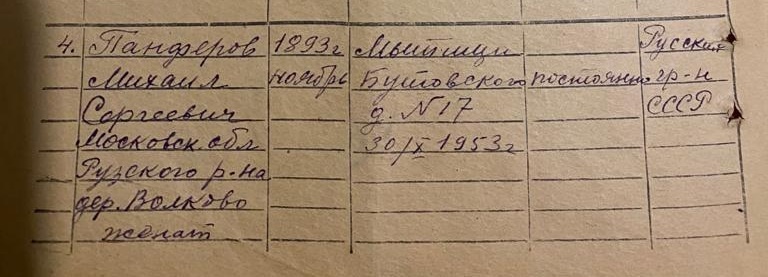 4. Панферов 1893г Мытищи Русский
Михаил ноябрь Бутовского постоянно гр-н
Сергеевич д. N 17 СССР
Московск. обл 30/X 1953г
Рузского р-на
дер. Волково
женат